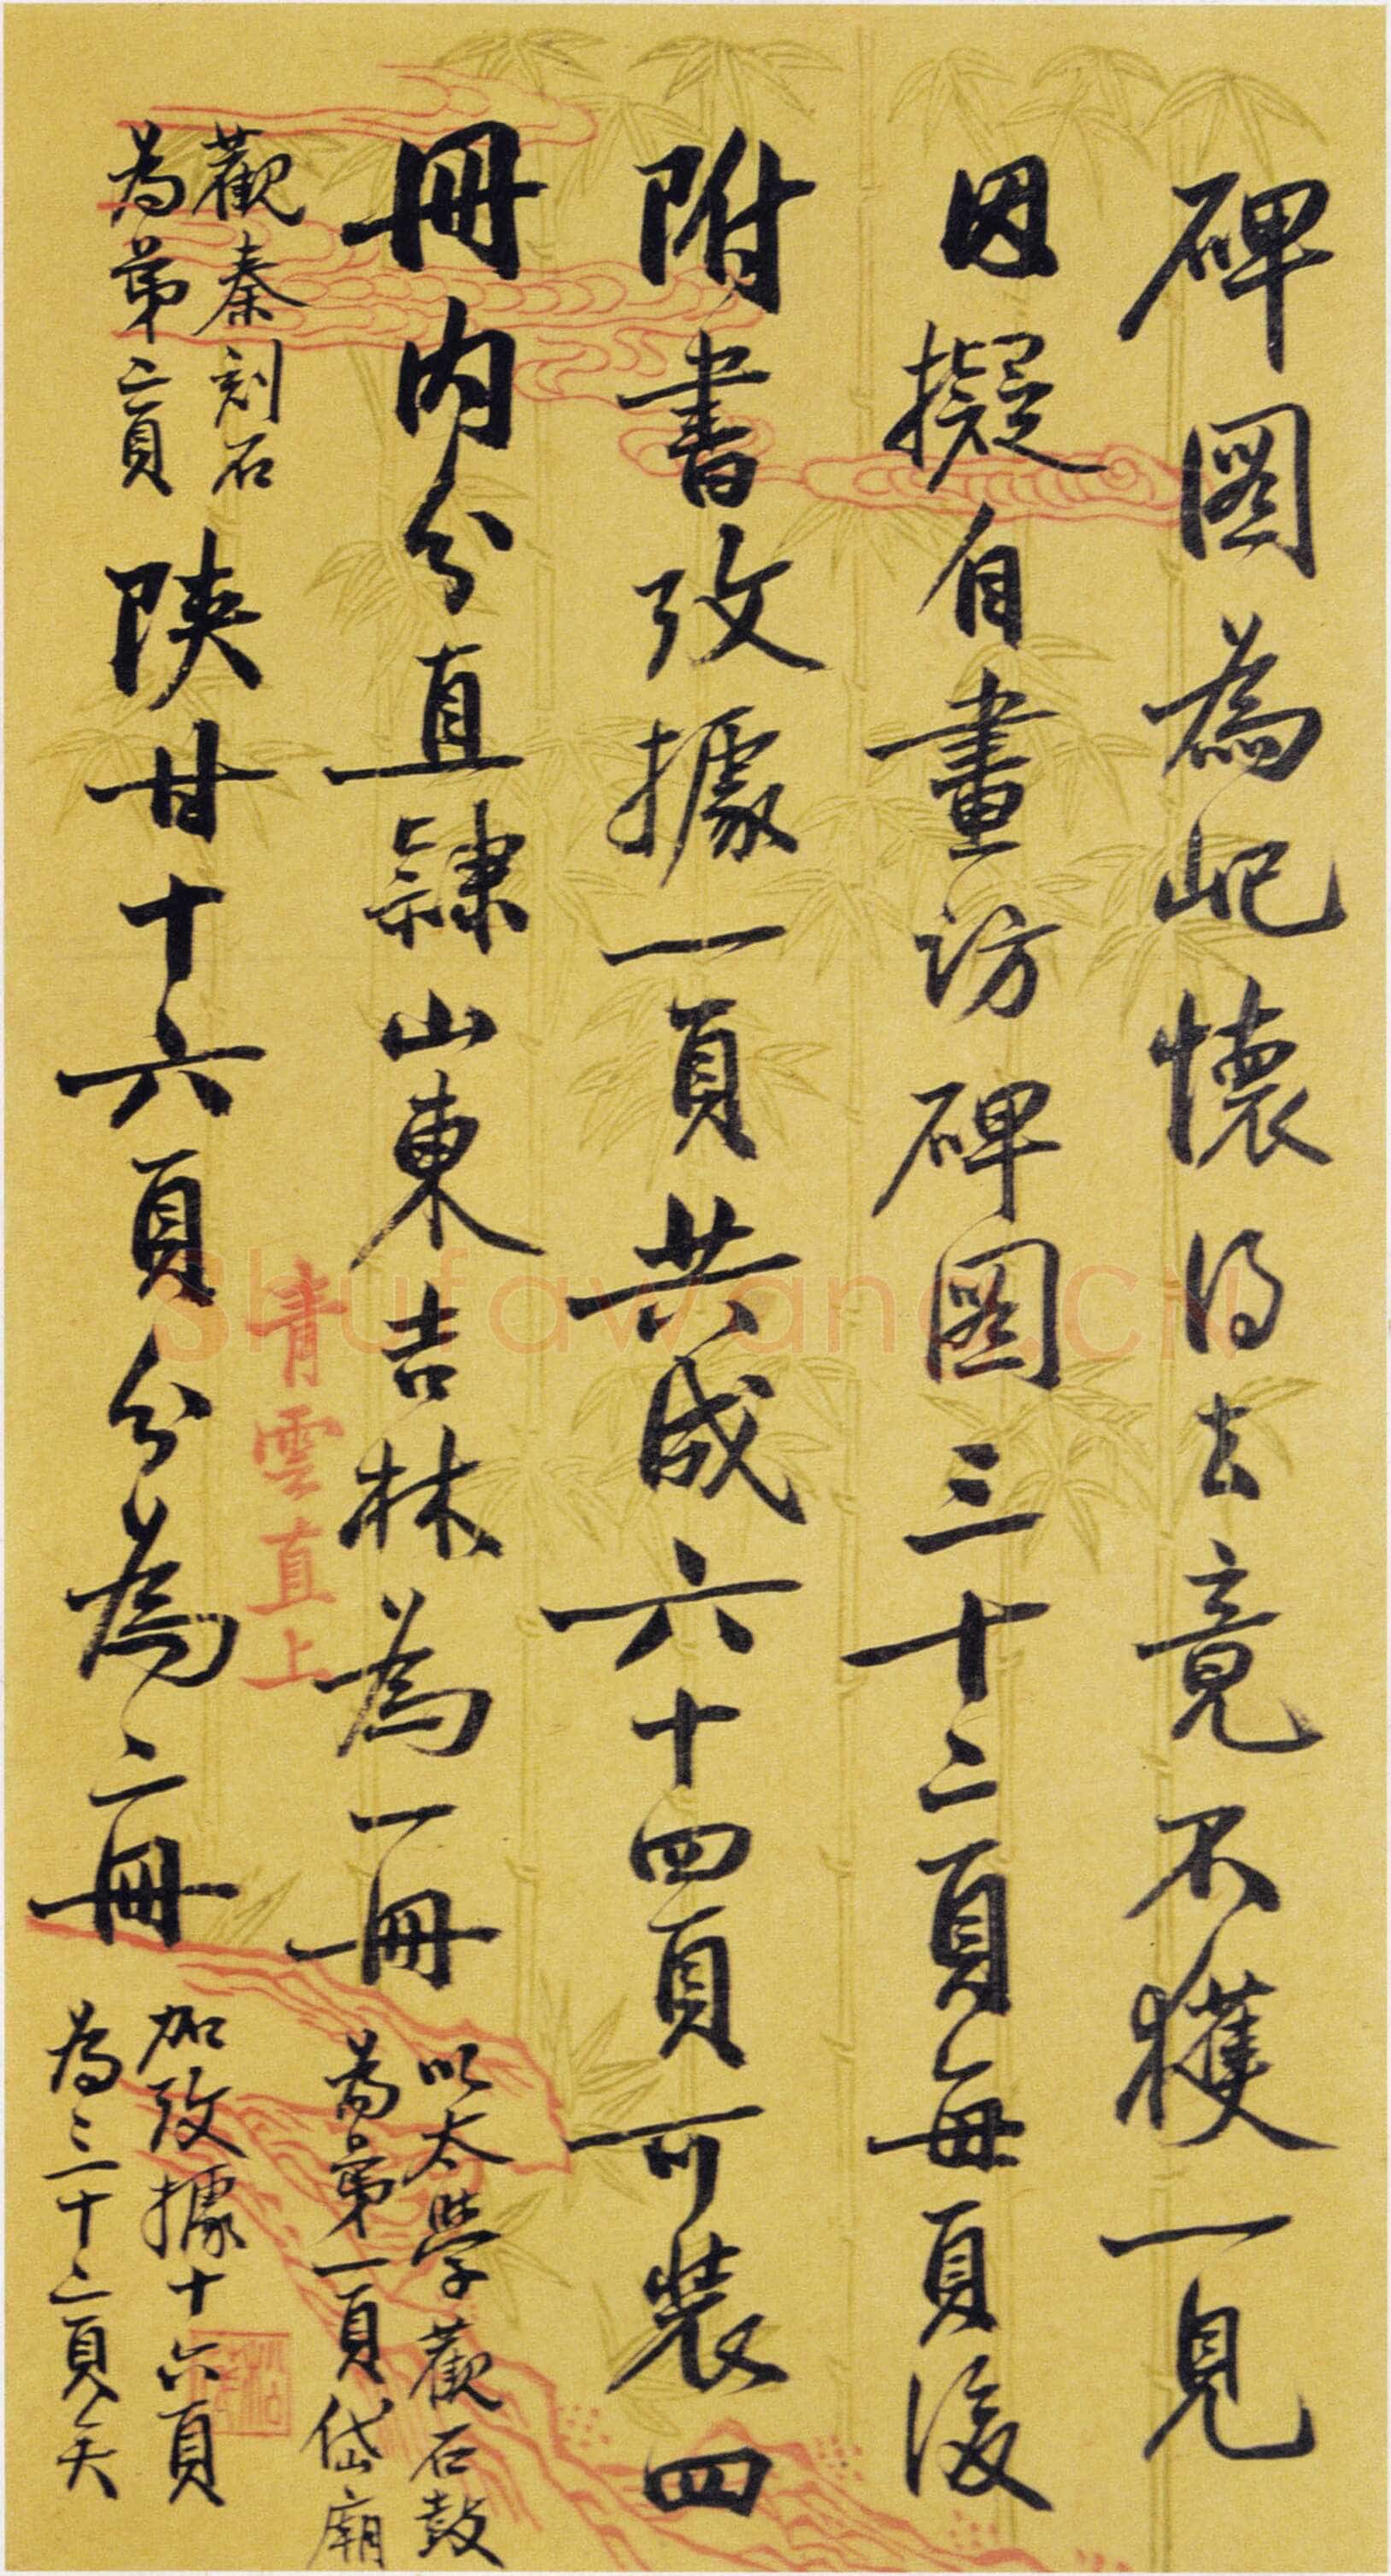 碑圖為屺懷得去竟不獲一見
因擬自畫訪碑圖三十二頁每頁後
附書攷據一頁共成六十四頁可裝四
冊內分直隸山東吉林為一冊
以太學觀石鼓
為第一頁岱廟
觀秦刻石
為第二頁
陝甘十六頁分為二冊
加攷據十六頁
為三十二頁矣
青雲直上
Shufawang.CN